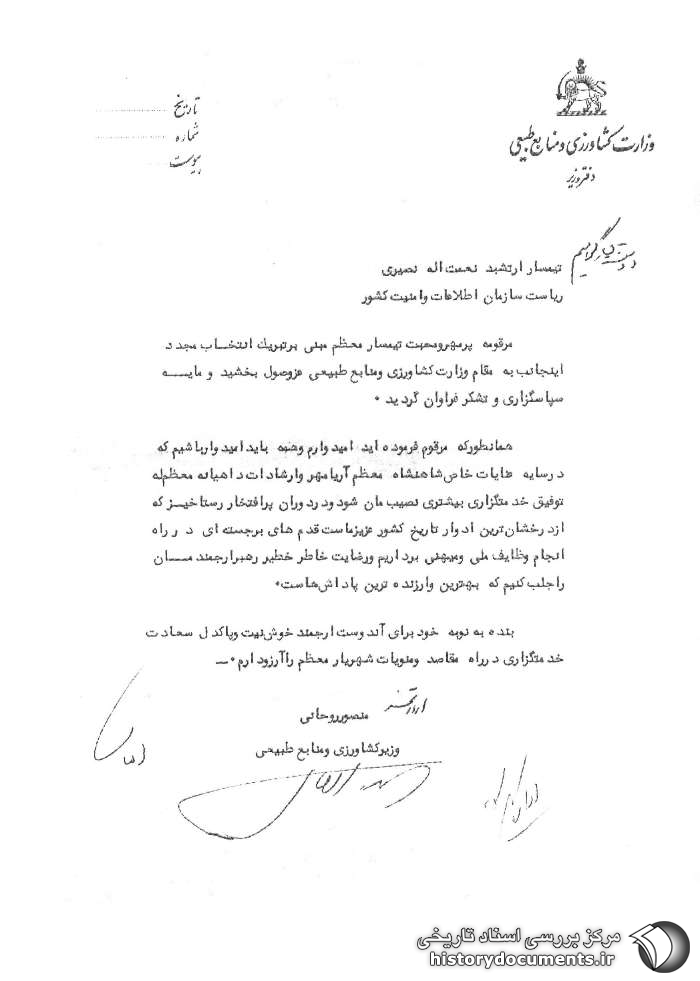 وزارت کشاورزی و منابع طبیعی
دفتر وزیر
تاریخ
شماره
پیوست
دوست گرامیم
تیمسار ارتشبد نعمت اله نصیری
ریاست سازمان اطلاعات و امنیت کشور
مرقومه پرمهرومحبت تیمسار معظم مبنی برتبریک انتخاب مجدد
اینجانب به مقام وزارت کشاورزی ومنابع طبیعی عزوصول بخشید و مایه
سپاسگزاری و تشکر فراوان گردید ٠
همانطورکه مرقوم فرموده اید امیدوارم وهمه باید امیدوارباشیم که
درسایه عنایات خاص شاهنشاه معظم آریامهر وارشادات داهیانه معظم‌له
توفیق خدمتگزاری بیشتری نصیب مان شود ودردوران پرافتخار رستاخیز که
ازدرخشان‌ترین ادوار تاریخ کشور عزیزماست قدم های برجسته ای در راه
انجام وظایف ملی ومیهنی برداریم ورضایت خاطر خطیر رهبرارجمند مان
راجلب کنیم که بهترین وارزنده ترین پاداش‌هاست٠
بنده به نوبه خود برای آندوست ارجمند خوش‌نیت وپاکدل سعادت
خدمتگزاری درراه مقاصد ومنویات شهریار معظم راآرزودارم ٠ـ
ارادتمند
منصورروحانی
وزیرکشاورزی ومنابع طبیعی
مرکز بررسی اسناد تاریخی
historydocuments.ir